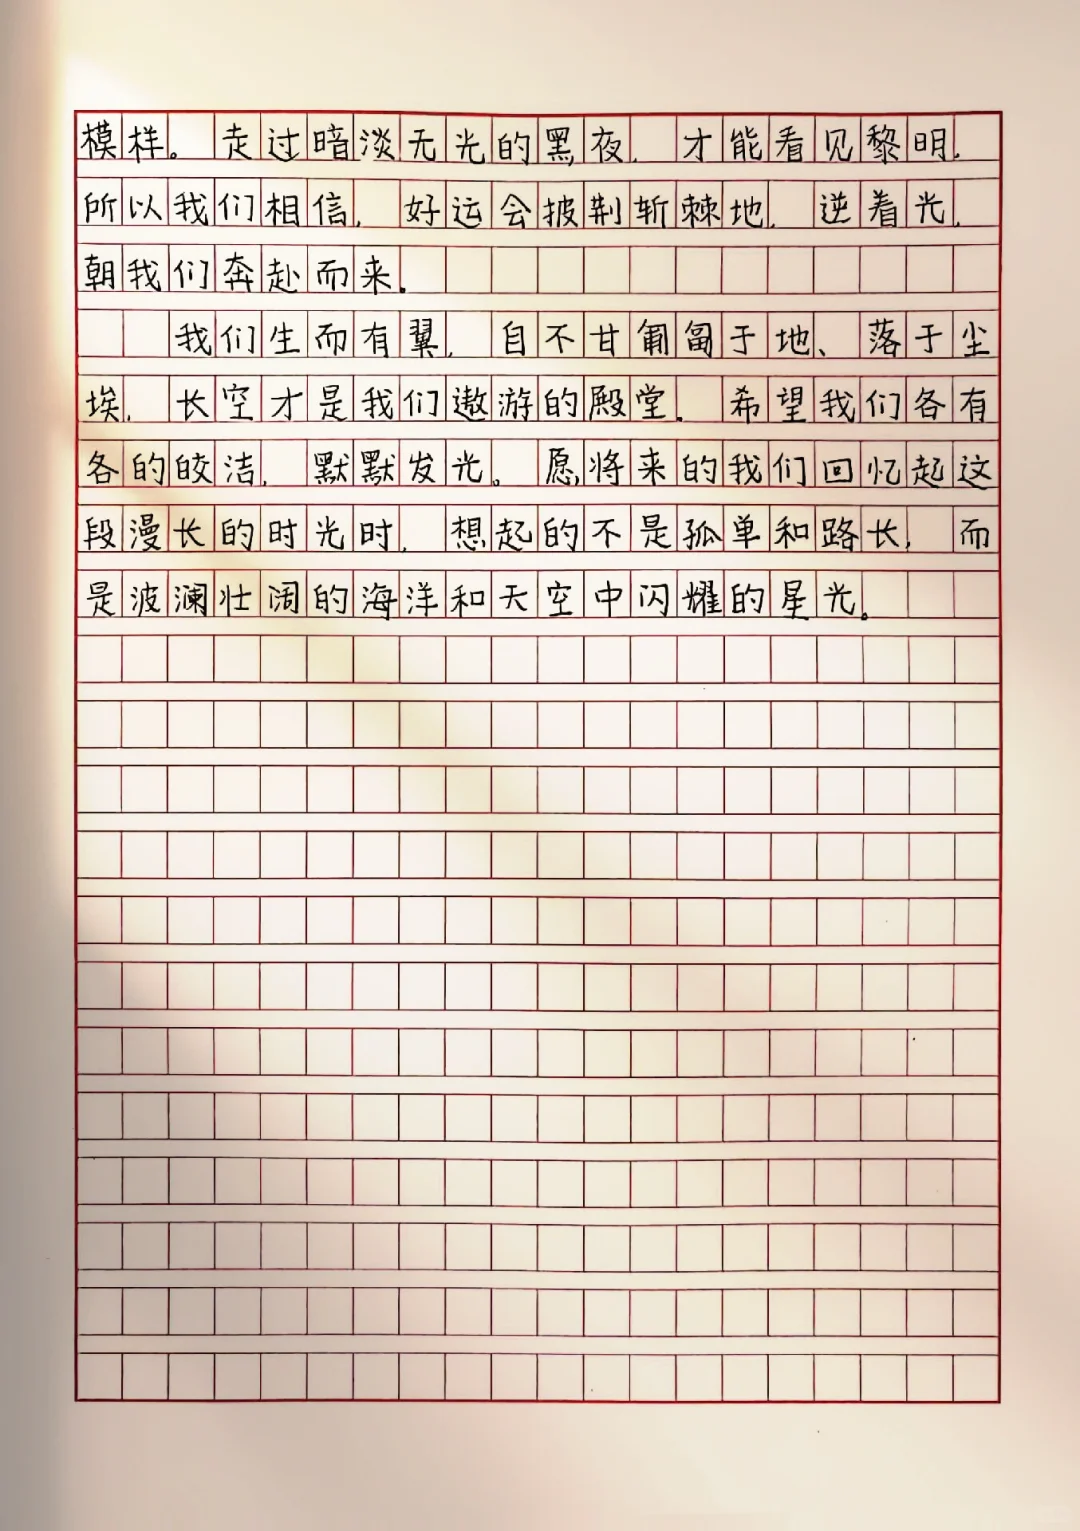 模样。走过暗淡无光的黑夜，才能看见黎明，
所以我们相信，好运会披荆斩棘地，逆着光，
朝我们奔赴而来。
我们生而有翼，自不甘匍匐于地、落于尘
埃，长空才是我们遨游的殿堂。希望我们各有
各的皎洁，默默发光。愿将来的我们回忆起这
段漫长的时光时，想起的不是孤单和路长，而
是波澜壮阔的海洋和天空中闪耀的星光。